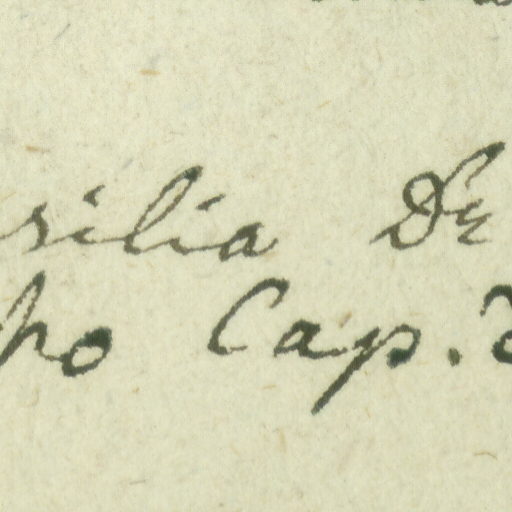 silia De
po Cap.